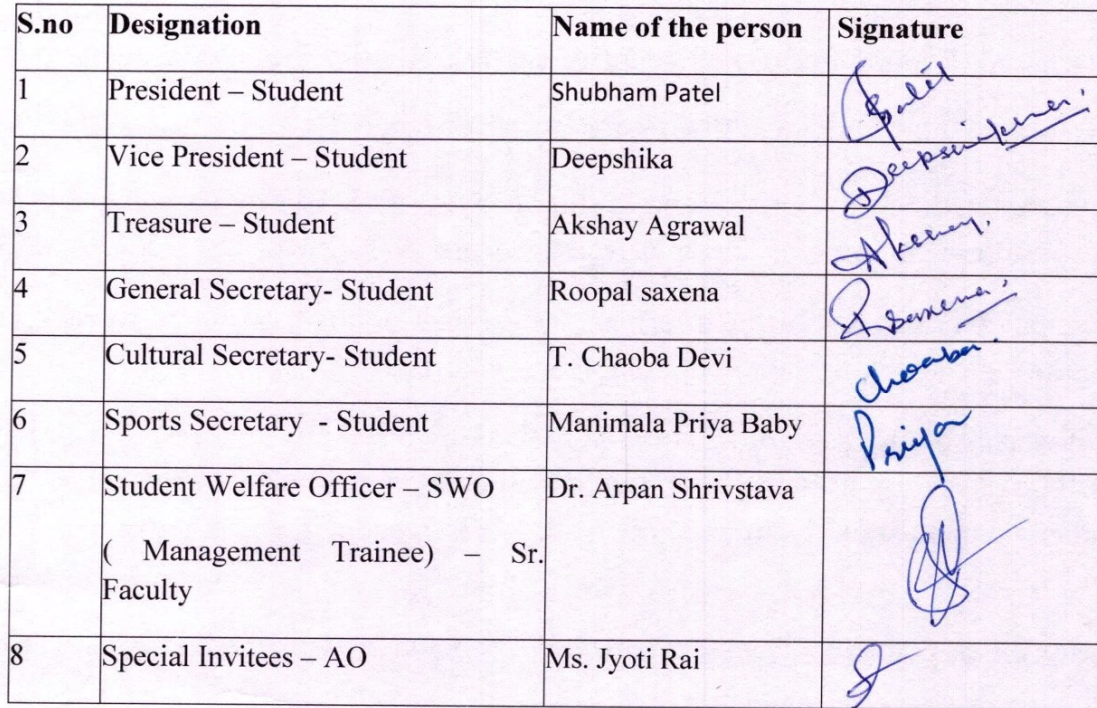 S.no Designation Name of the person Signature
1 President – Student Shubham Patel
2 Vice President – Student Deepshika
3 Treasure – Student Akshay Agrawal
4 General Secretary- Student Roopal saxena
5 Cultural Secretary- Student T. Chaoba Devi Chaoba.
6 Sports Secretary - Student Manimala Priya Baby Priya
7 Student Welfare Officer – SWO Dr. Arpan Shrivstava
( Management Trainee) – Sr.
Faculty
8 Special Invitees – AO Ms. Jyoti Rai